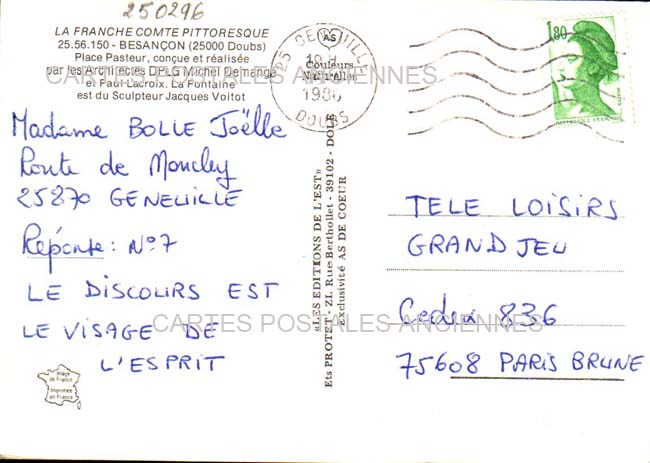 250296
LA FRANCHE COMTE PITTORESQUE
25.56.150 - BESANÇON (25000 Doubs)
Place Pasteur, conçue et réalisée
par les Architectes DPLG Michel Demange
et Paul Lacroix. La Fontaine
est du Sculpteur Jacques Voitot
CARTES POSTALES ANCIENNES
Madame BOLLE Joëlle
Route de Moncley
25870 GENEUILLE
Réponse : N°7
LE DISCOURS EST
LE VISAGE DE
L'ESPRIT
CARTES POSTALES ANCIENNES
Image
de France
Imprimée
en France
AS
Couleurs
Naturelles
25 GENEUILLE
1986
DOUBS
«LES EDITIONS DE L'EST»
Ets PROTET - ZI. Rue Berthollet - 39102 - DOLE
Exclusivité AS DE COEUR
1,80
POSTES
REPUBLIQUE FRANÇAISE
TELE LOISIRS
GRAND JEU
Cedex 836
75608 PARIS BRUNE